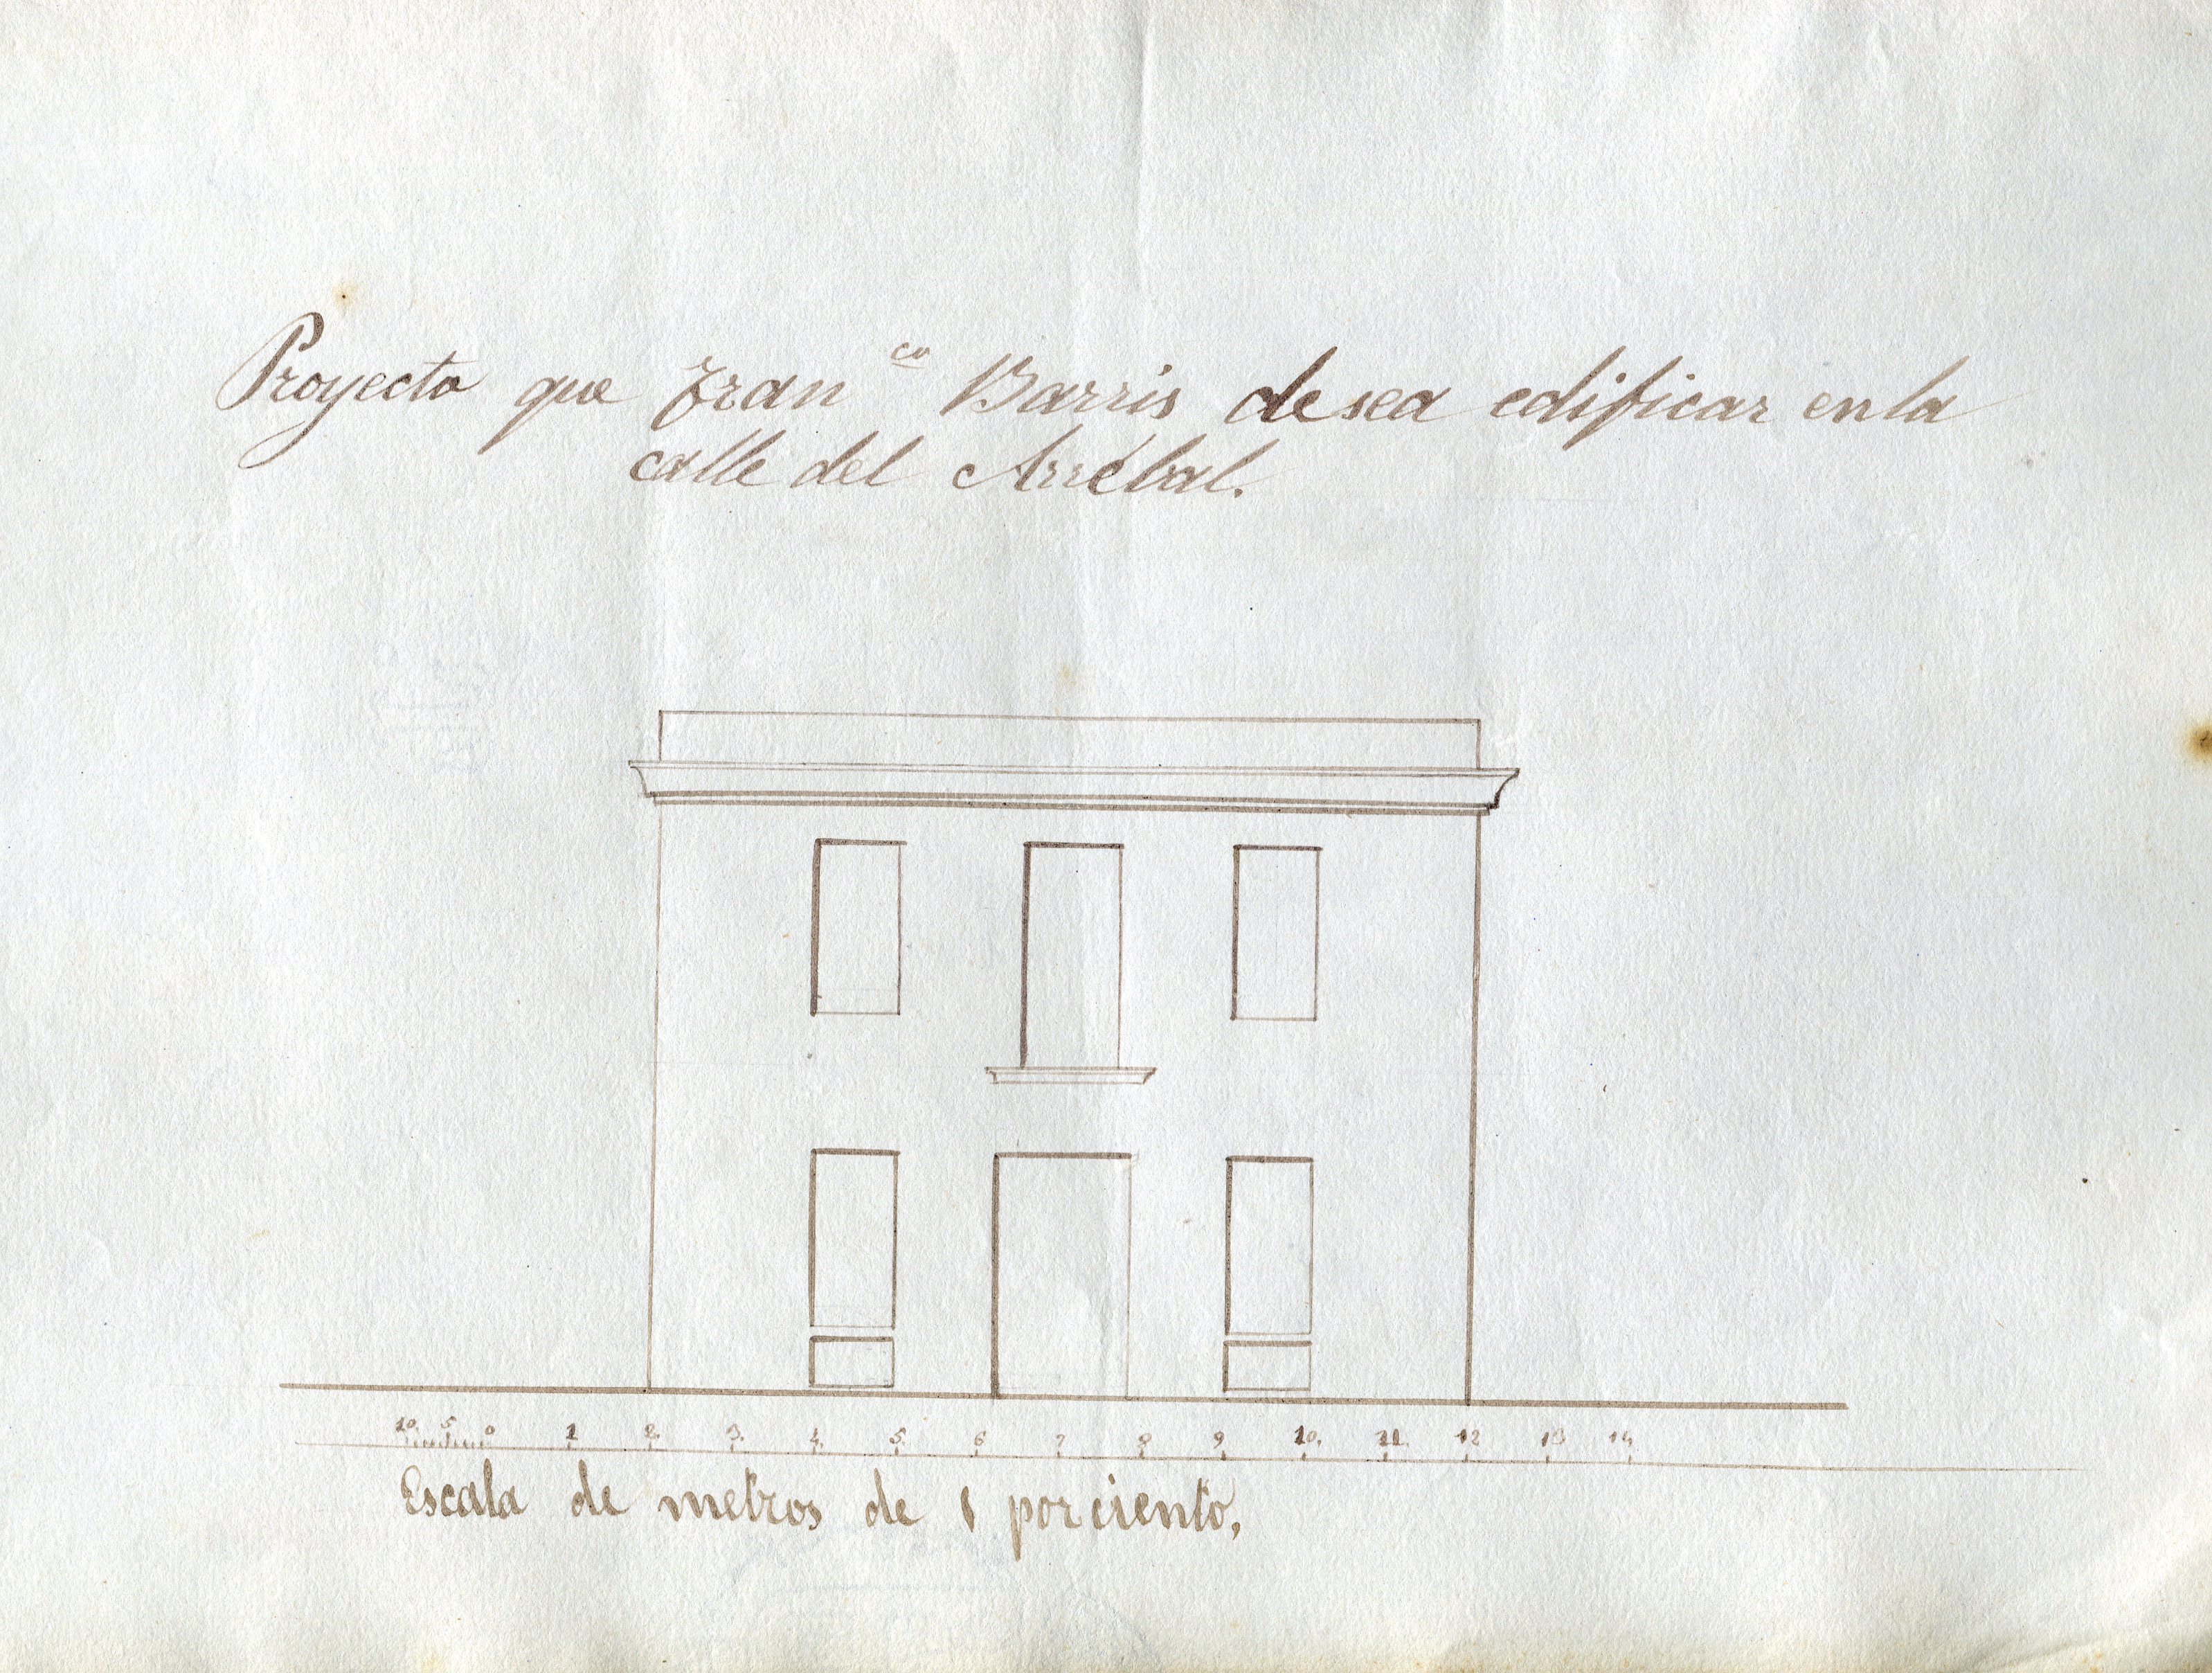 Proyecto que Fran.co Barris desea edificar en la
calle del Arrébal.
10. 5. 0 1 2. 3. 4. 5. 6 7 8 9 10. 11. 12 13 14
Escala de metros de 1 por ciento.